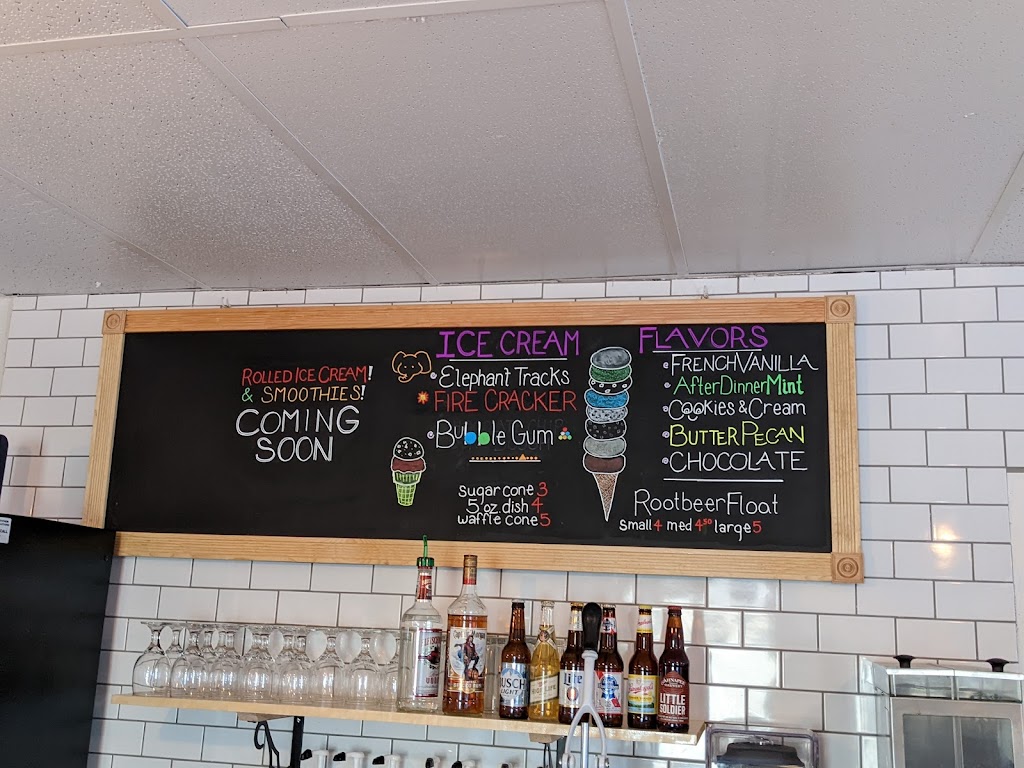 ROLLED ICE CREAM!
& SMOOTHIES!
COMING
SOON
ICE CREAM
Elephant Tracks
FIRE CRACKER
Bubble Gum
sugar cone 3
5 oz. dish 4
waffle cone 5
FLAVORS
FRENCH VANILLA
After Dinner Mint
Cookies & Cream
BUTTER PECAN
CHOCOLATE
Rootbeer Float
Small 4 med 4.50 large 5
BUSCH
LIGHT
Lite
LITTLE
SOLDIER